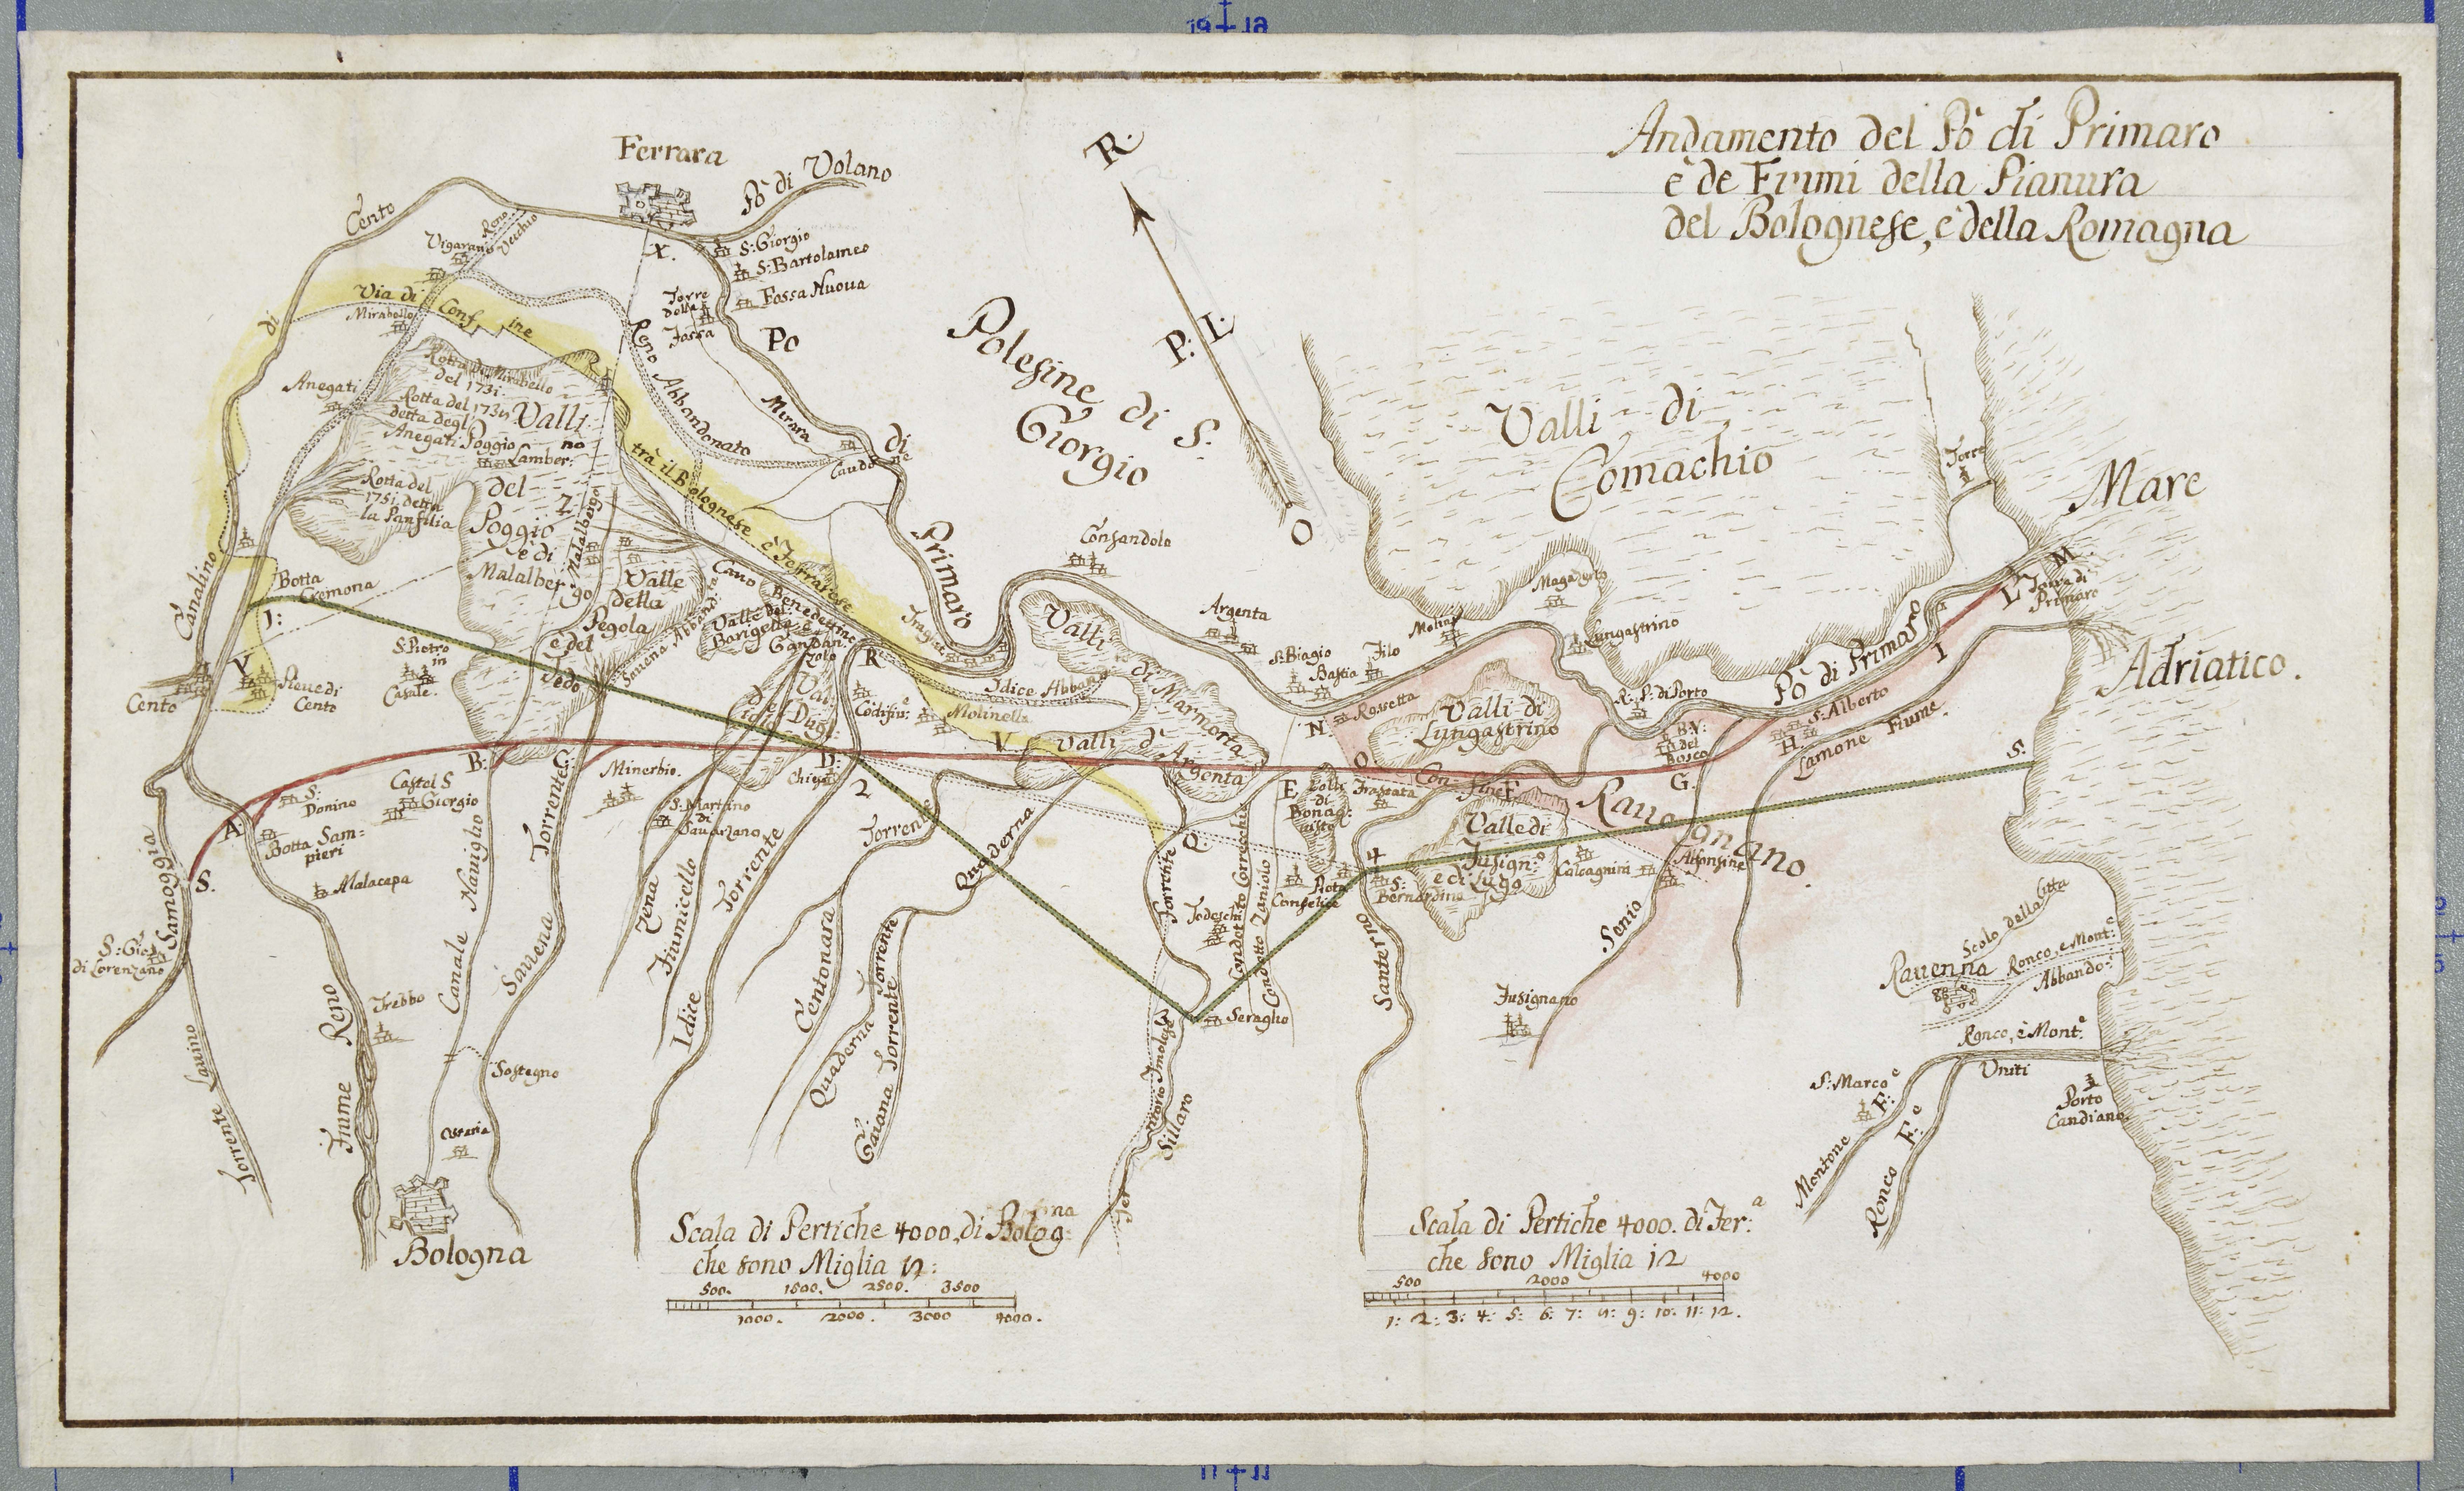 19 + 18
Andamento del Pò di Primaro
e de Fiumi della Pianura
del Bolognese, e della Romagna
Ferrara
Pò di Volano
S: Giorgio
S: Bartolameo
Fossa Nuova
Torre
della
Fossa
X.
Reno
Vecchio
Vigarano
Canalino
di
Cento
Via di
Confine
trà il Bolognese è Ferrarese
Mirabello
Rotta di Mirabello
del 1731
Anegati
Rotta del
detta degl'
Anegati
Poggio
Lamber:
no
Rotta del
1751 detta
la Panfilia
Valli
del
Poggio
è di
Malalber
go
Malalbergo
Z
Reno Abbandonato
Mirara
Po
di
Primaro
Polesine di S.
Giorgio
R.
P. L.
O
Consandolo
Valli di
Comachio
Torre
Mare
Adriatico.
M.
L
Torre di
Primaro
Magazeno
Lungastrino
Argenta
S: Biagio
Bastia
Filo
Molina
Rossetta
N.
Valli di
Lungastrino
R: P: di Porto
B: V:
del
Bosco
Pò di Primaro
S: Alberto
H.
I
Lamone Fiume.
S.
Botta
Cremona
1:
Y
Cento
Pieve di
Cento
S. Pietro
in
Casale.
Valle
della
Tegola
e del
Tedo
Savena Abband:
Cavo Benedettino
Valle del
Barigella è
Gandan:
zolo
R
Idice Abband
Molinella
Valli
di Marmorta
Valli d'Argenta
V
B:
C:
D:
2
E
O
F
G.
Q
4
3
A
S.
S:
Donino
Castel S
Giorgio
Botta Sam=
pieri
Malacapa
Minerbio.
S: Martino
di
Chiesa
Valli
di
Trassata
Confine
Valle di
Fusign:o
e di Lugo
Calcagnini
Alfonsine
Ravegnano.
S:
Bernardino
Conselice
Condotto Correcchio
Condotto Zaniolo
Seraglio
Fusignano
Santerno
Senio
Samoggia
S: Gio:
di Lorenzano
Torrente Lavino
Fiume Reno
Trebbo
Canale Naviglio
Torrente
Savena
Sostegno
Bologna
Zena
Fiumicello
Torrente
Idice
Torrente
Centonara
Quaderna
Quaderna Torrente
Gaiana Torrente
Torrente
Sillaro
Scolo della Città
Ravenna
Ronco, e Mont:e
Abbando:i
Ronco, e Mont:e
Uniti
S: Marco
Montone F:e
Ronco F:e
Porto
Candiano
Scala di Pertiche 4000. di Bolog:na
che sono Miglia 12:
500. 1500. 2500. 3500
1000. 2000. 3000 4000.
Scala di Pertiche 4000. di Fer:a
che sono Miglia 12
500 2000 4000
1: 2: 3: 4: 5: 6: 7: 8: 9: 10: 11: 12.
11 + 11